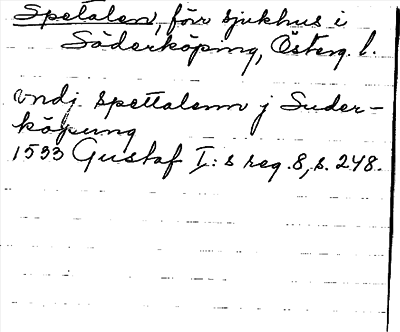 Spetalen, förr sjukhus i
Söderköping, Österg. l.
vndj. Spettalenn j Suder-
köpung
1533 Gustaf I:s reg. 8, s. 248.